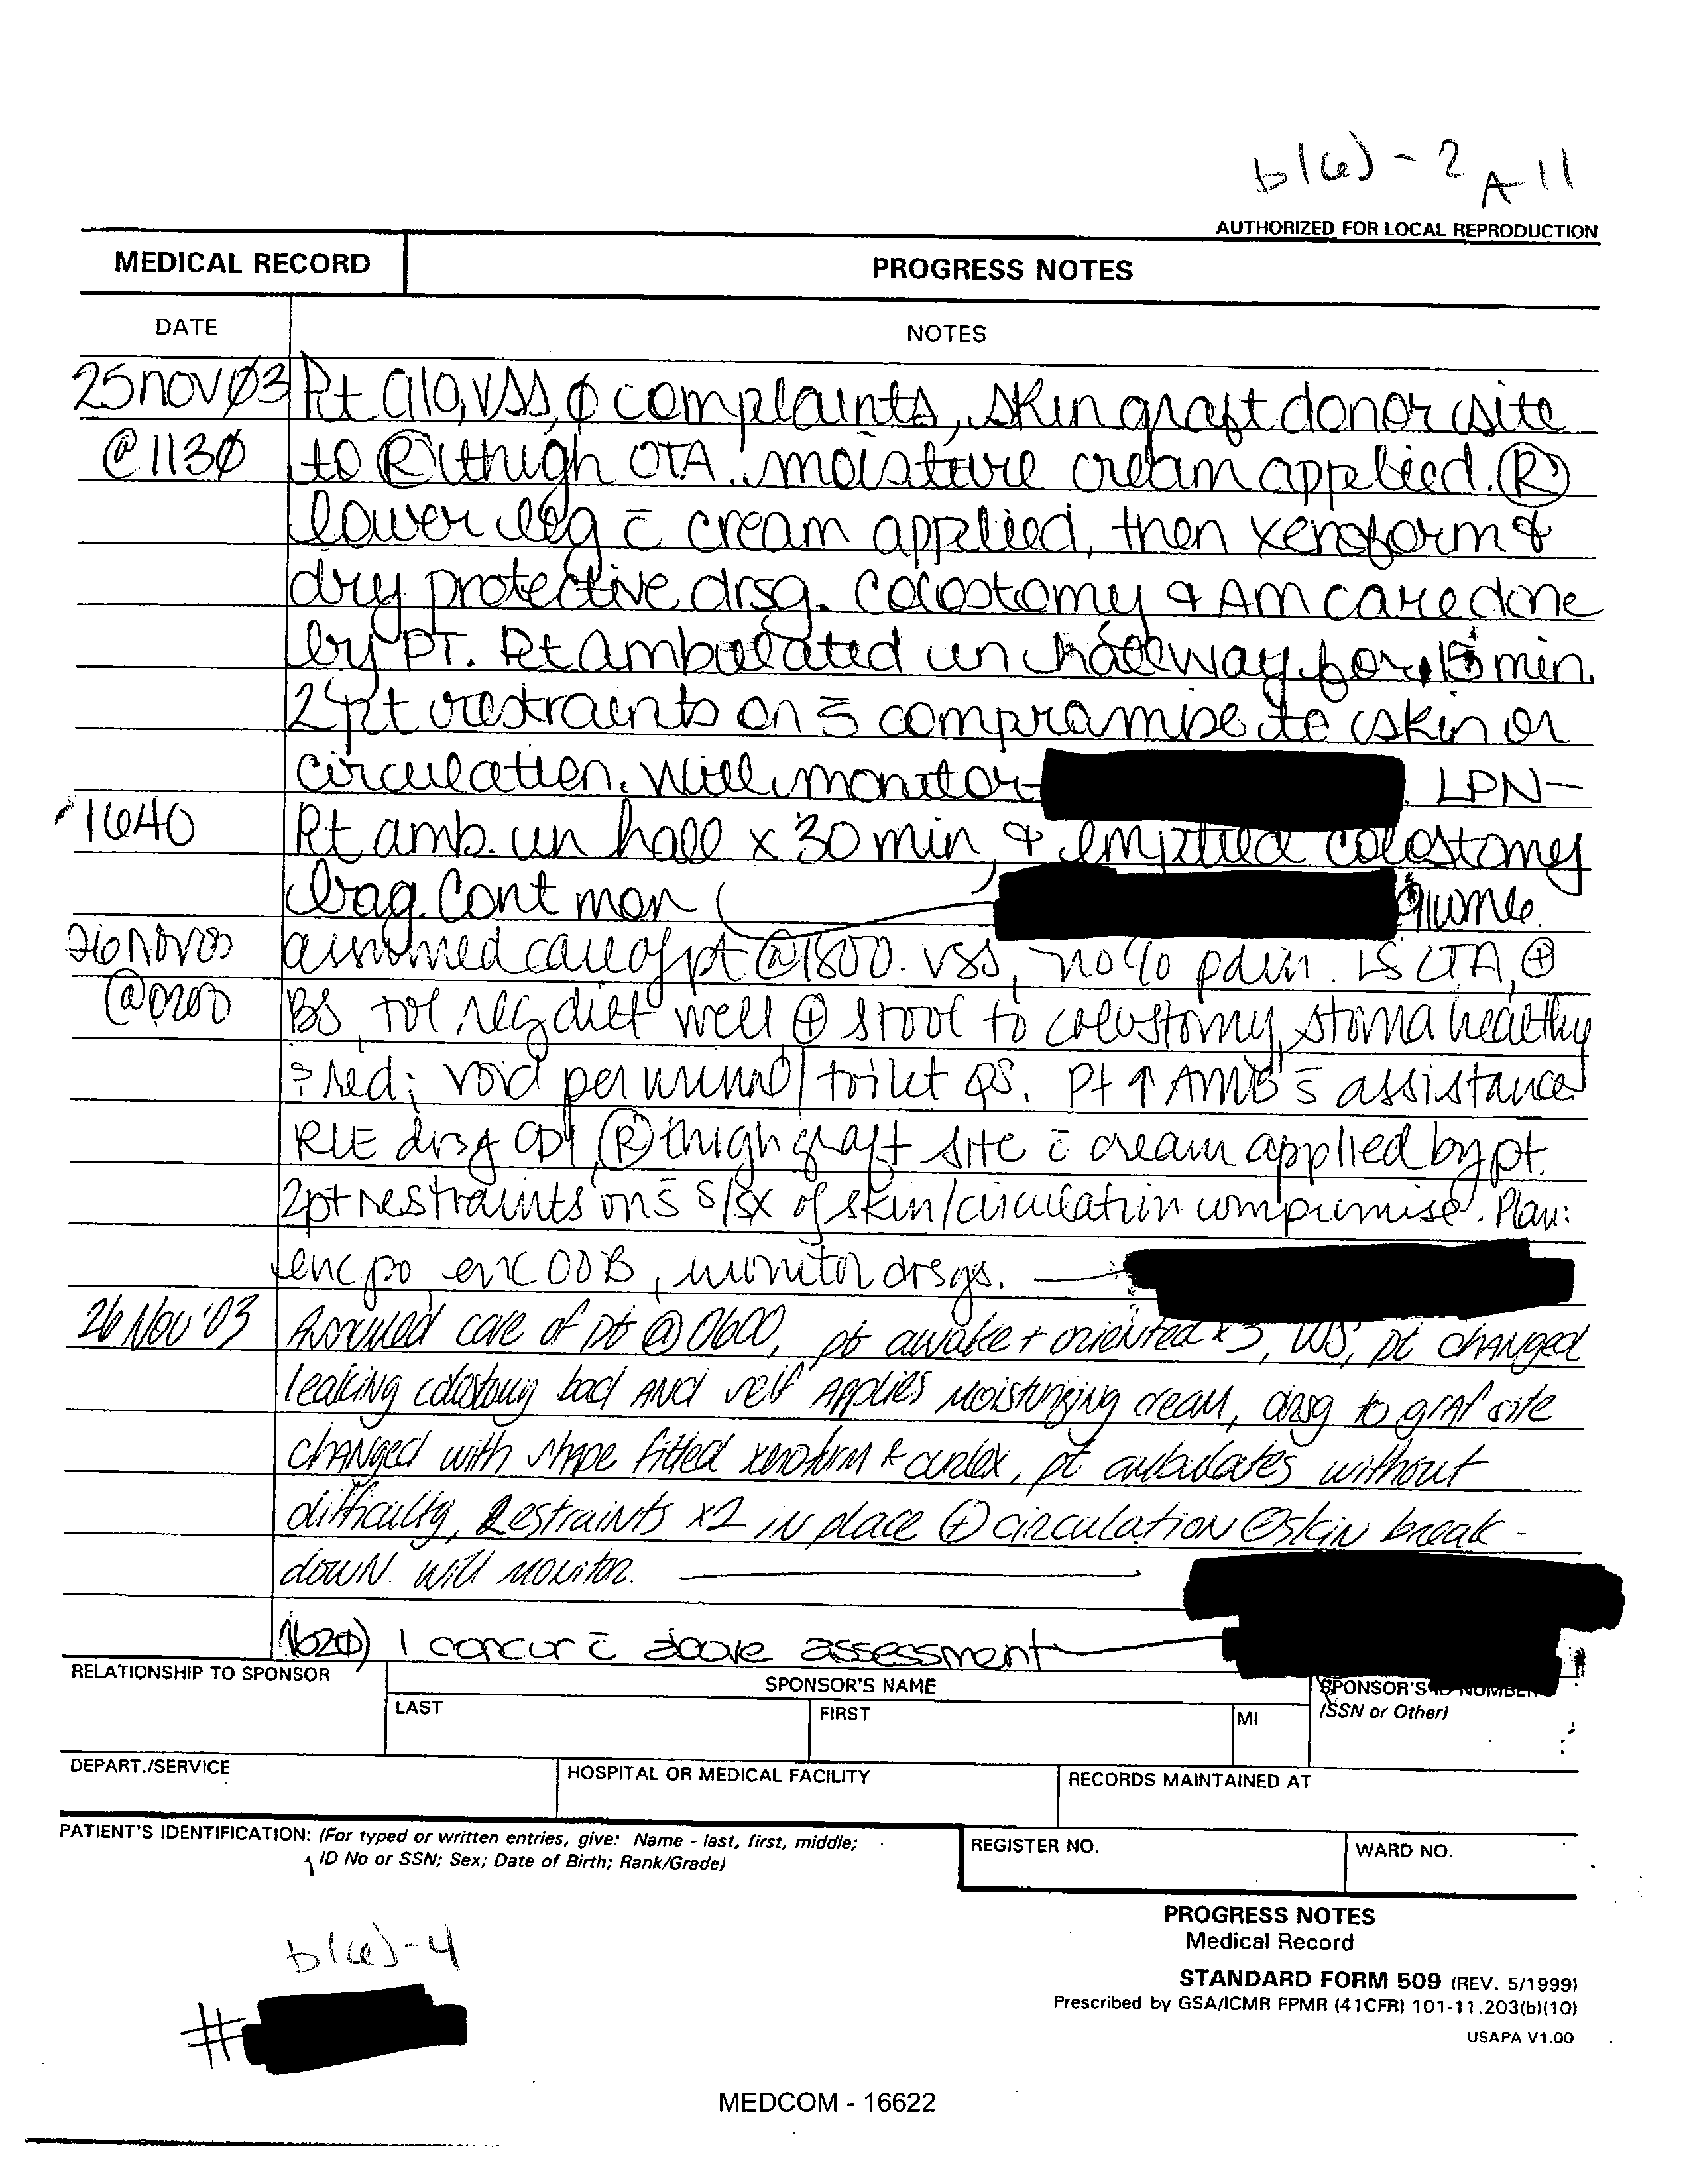 b(6)-2 A-11
AUTHORIZED FOR LOCAL REPRODUCTION
MEDICAL RECORD PROGRESS NOTES
DATE NOTES
25 nov Ø3 Pt a/o, VSS, Ø complaints, skin graft donor site
@ 113Ø to Ⓡ thigh OTA. moisture cream applied. Ⓡ
lower leg c̄ cream applied, then xeroform &
dry protective drsg. Colostomy & AM care done
by PT. Pt ambulated in hallway for 15 min.
2 pt restraints on s̄ compramise to skin or
circulation. Will monitor LPN
1640 Pt amb. in hall x 30 min, & emptied colostomy
bag. Cont mon
26 Nov 03 assumed care of pt @ 1800. VSS, no c/o pain. LS CTA, ⊕
@ 0200 BS, tol reg diet well ⊕ stool to colostomy, stoma healthy
red; void per urinal/toilet QS. Pt ↑ AMB s̄ assistance
RLE drsg CDI, Ⓡ thigh graft site c̄ cream applied by pt.
2pt restraints on s̄ s/sx of skin/circulation compromise. Plan:
enc po enc OOB, monitor drsgs.
26 Nov '03 Assumed care of pt @ 0600, pt awake + oriented x 3, VSS, pt changed
leaking colostomy bad AND self Applies moisturizing cream, drsg to graf site
changed with shape fitted xeroform & curlex, pt ambulates without
difficulty, Restraints x2 in place ⊕ circulation ⊖ skin break-
down. will monitor.
162Ø) I concur c̄ above assessment
RELATIONSHIP TO SPONSOR SPONSOR'S NAME SPONSOR'S ID NUMBER
LAST FIRST MI (SSN or Other)
DEPART./SERVICE HOSPITAL OR MEDICAL FACILITY RECORDS MAINTAINED AT
PATIENT'S IDENTIFICATION: (For typed or written entries, give: Name - last, first, middle;
ID No or SSN; Sex; Date of Birth; Rank/Grade)
REGISTER NO. WARD NO.
PROGRESS NOTES
Medical Record
b(6)-4
STANDARD FORM 509 (REV. 5/1999)
Prescribed by GSA/ICMR FPMR (41CFR) 101-11.203(b)(10)
USAPA V1.00
#
MEDCOM - 16622